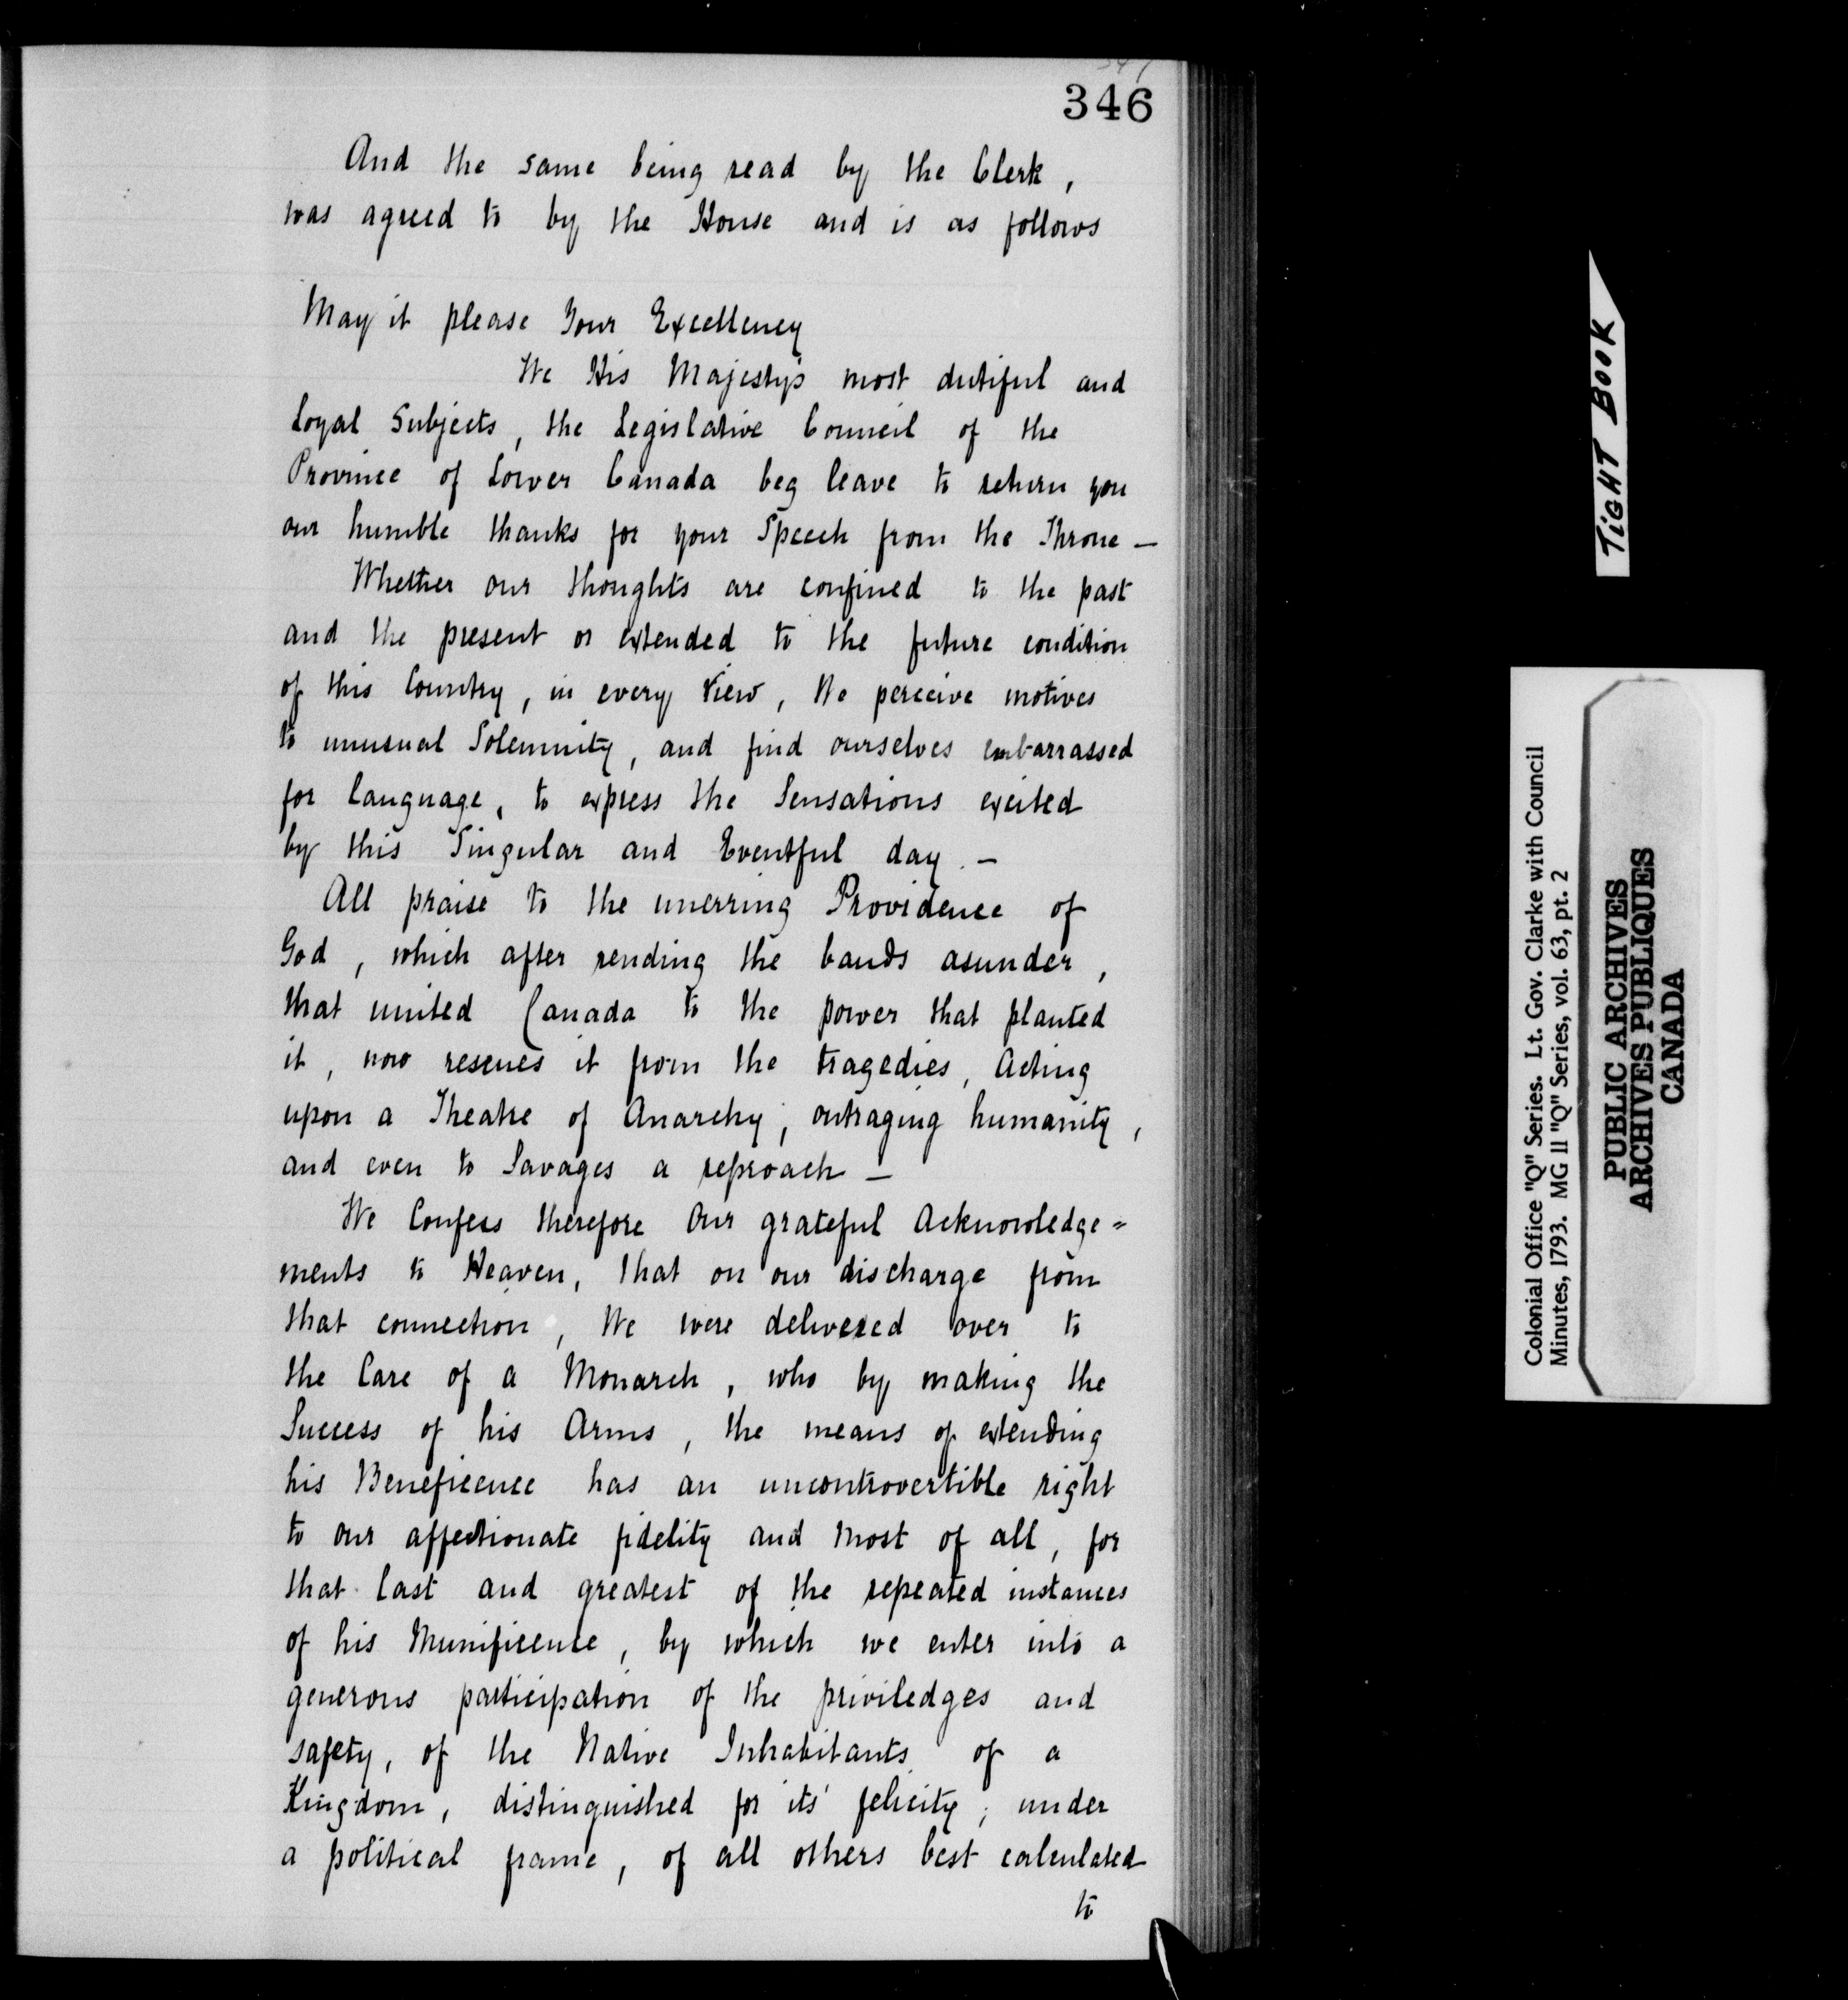 346
And the same being read by the Clerk,
was agreed to by the House and is as follows
May it please Your Excellency
We His Majesty's most dutiful and
Loyal Subjects, the Legislative Council of the
Province of Lower Canada beg leave to return you
our humble thanks for your Speech from the Throne —
Whether our thoughts are confined to the past
and the present or extended to the future condition
of this Country, in every View, We perceive motives
to unusual Solemnity, and find ourselves embarrassed
for language, to express the Sensations excited
by this Singular and Eventful day. —
All praise to the unerring Providence of
God, which after rending the bands asunder,
that united Canada to the power that planted
it, now rescues it from the tragedies, Acting
upon a Theatre of Anarchy, outraging humanity,
and even to Savages a reproach —
We Confess therefore Our grateful Acknowledge=
ments to Heaven, that on our discharge from
that connection, We were delivered over to
the Care of a Monarch, who by making the
Success of his Arms, the means of extending
his Beneficence has an uncontrovertible right
to our affectionate fidelity and most of all, for
that last and greatest of the repeated instances
of his Munificence, by which we enter into a
generous participation of the priviledges and
safety, of the Native Inhabitants of a
Kingdom, distinguished for its' felicity, under
a political frame, of all others best calculated
to
TIGHT BOOK
Colonial Office "Q" Series. Lt. Gov. Clarke with Council
Minutes, 1793. MG 11 "Q" Series, vol. 63, pt. 2
PUBLIC ARCHIVES
ARCHIVES PUBLIQUES
CANADA